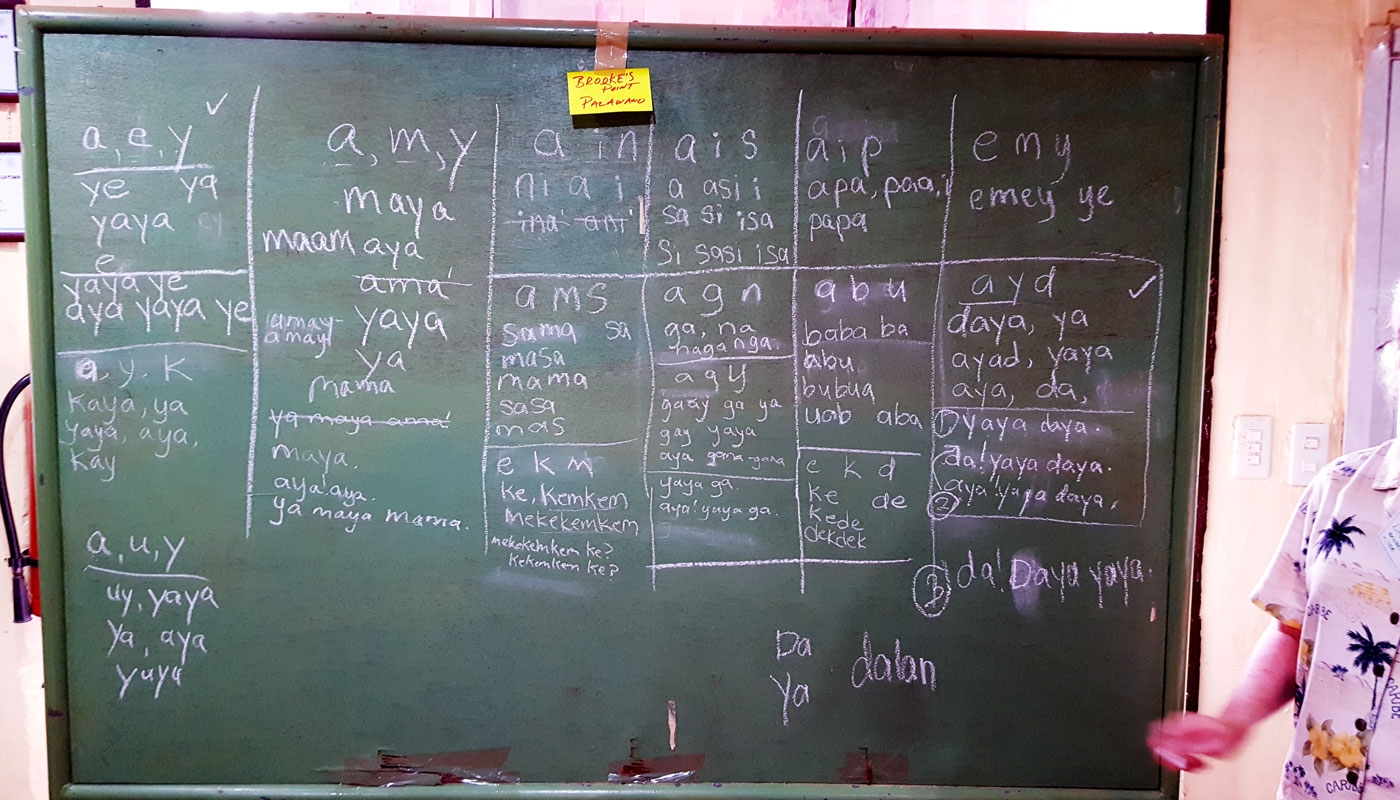 BROOKE'S
POINT
PALAWANO
a, e, y
ye ya
yaya
e
yaya ye
aya yaya ye
a, y, k
kaya, ya
yaya, aya,
kay
a, u, y
uy, yaya
ya, aya
yuyu
a, m, y
maya
maam aya
ama
amay-
amay
yaya
ya
mama
ya maya ama
maya.
aya! aya.
ya maya mama.
a i n
ni a i
ina ani
a m s
sama sa
masa
mama
sasa
mas
e k m
ke, kemkem
mekekemkem
mekekemkem ke?
kekemkem ke?
a i s
a asi i
sa si isa
si sasi isa
a g n
ga, na
naganga
a g y
gaay ga ya
gay yaya
aya gana-gana
yaya ga.
aya! yaya ga.
a i p
apa, papa, i
papa
a b u
baba ba
abu
bubua
uab aba
e k d
ke de
kede
dekdek
e m y
emey ye
a y d
daya, ya
ayad, yaya
aya, da,
1) yaya daya.
da! yaya daya.
2 aya! yaya daya.
3 da! Daya yaya.
Da
Ya
dalan